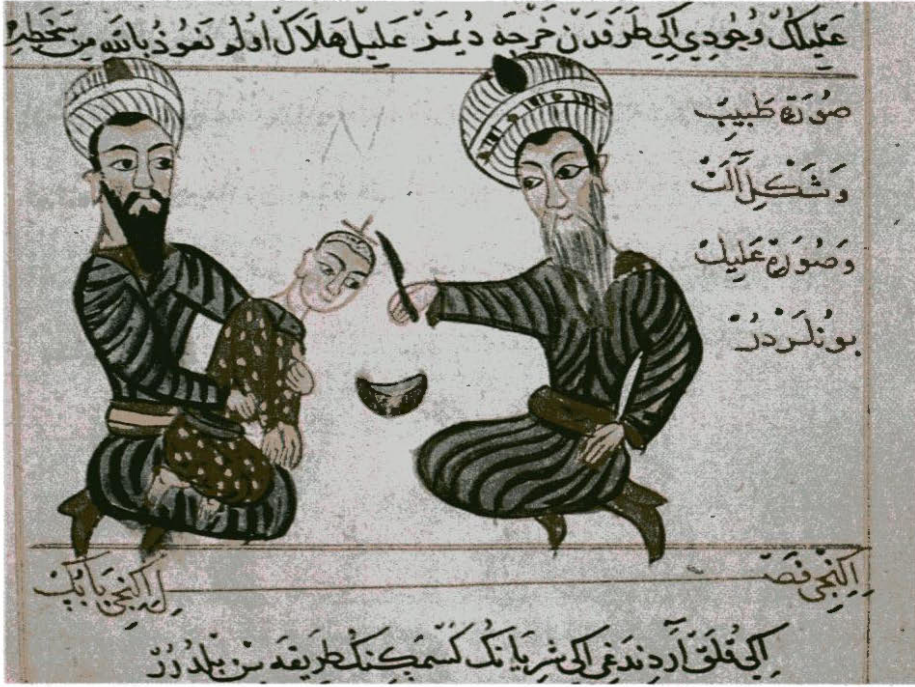 عَلِيلُكْ وُجُودِي اِكِي طَرَفْدَنْ خَرْجَه دُيَمَزْ عَلِيلْ هَلَاكْ اُولُو نَعُوذُ بِاللّٰهِ مِنْ سَخَطِهِ
صُورَةِ طَبِيبْ
وَشَكْلِ آلَتْ
وَصُورَةِ عَلِيلْ
بُونْلَرْدُرْ
اِكِنْجِي فَصْلْ
اِكِنْجِي بَابُكْ
اِكِي قُلَقْ آرْدِنْدَغِي اِكِي شِرْيَانُكْ كَسْمَكِنُكْ طَرِيقَه سِنْ بِلْدُرُرْ